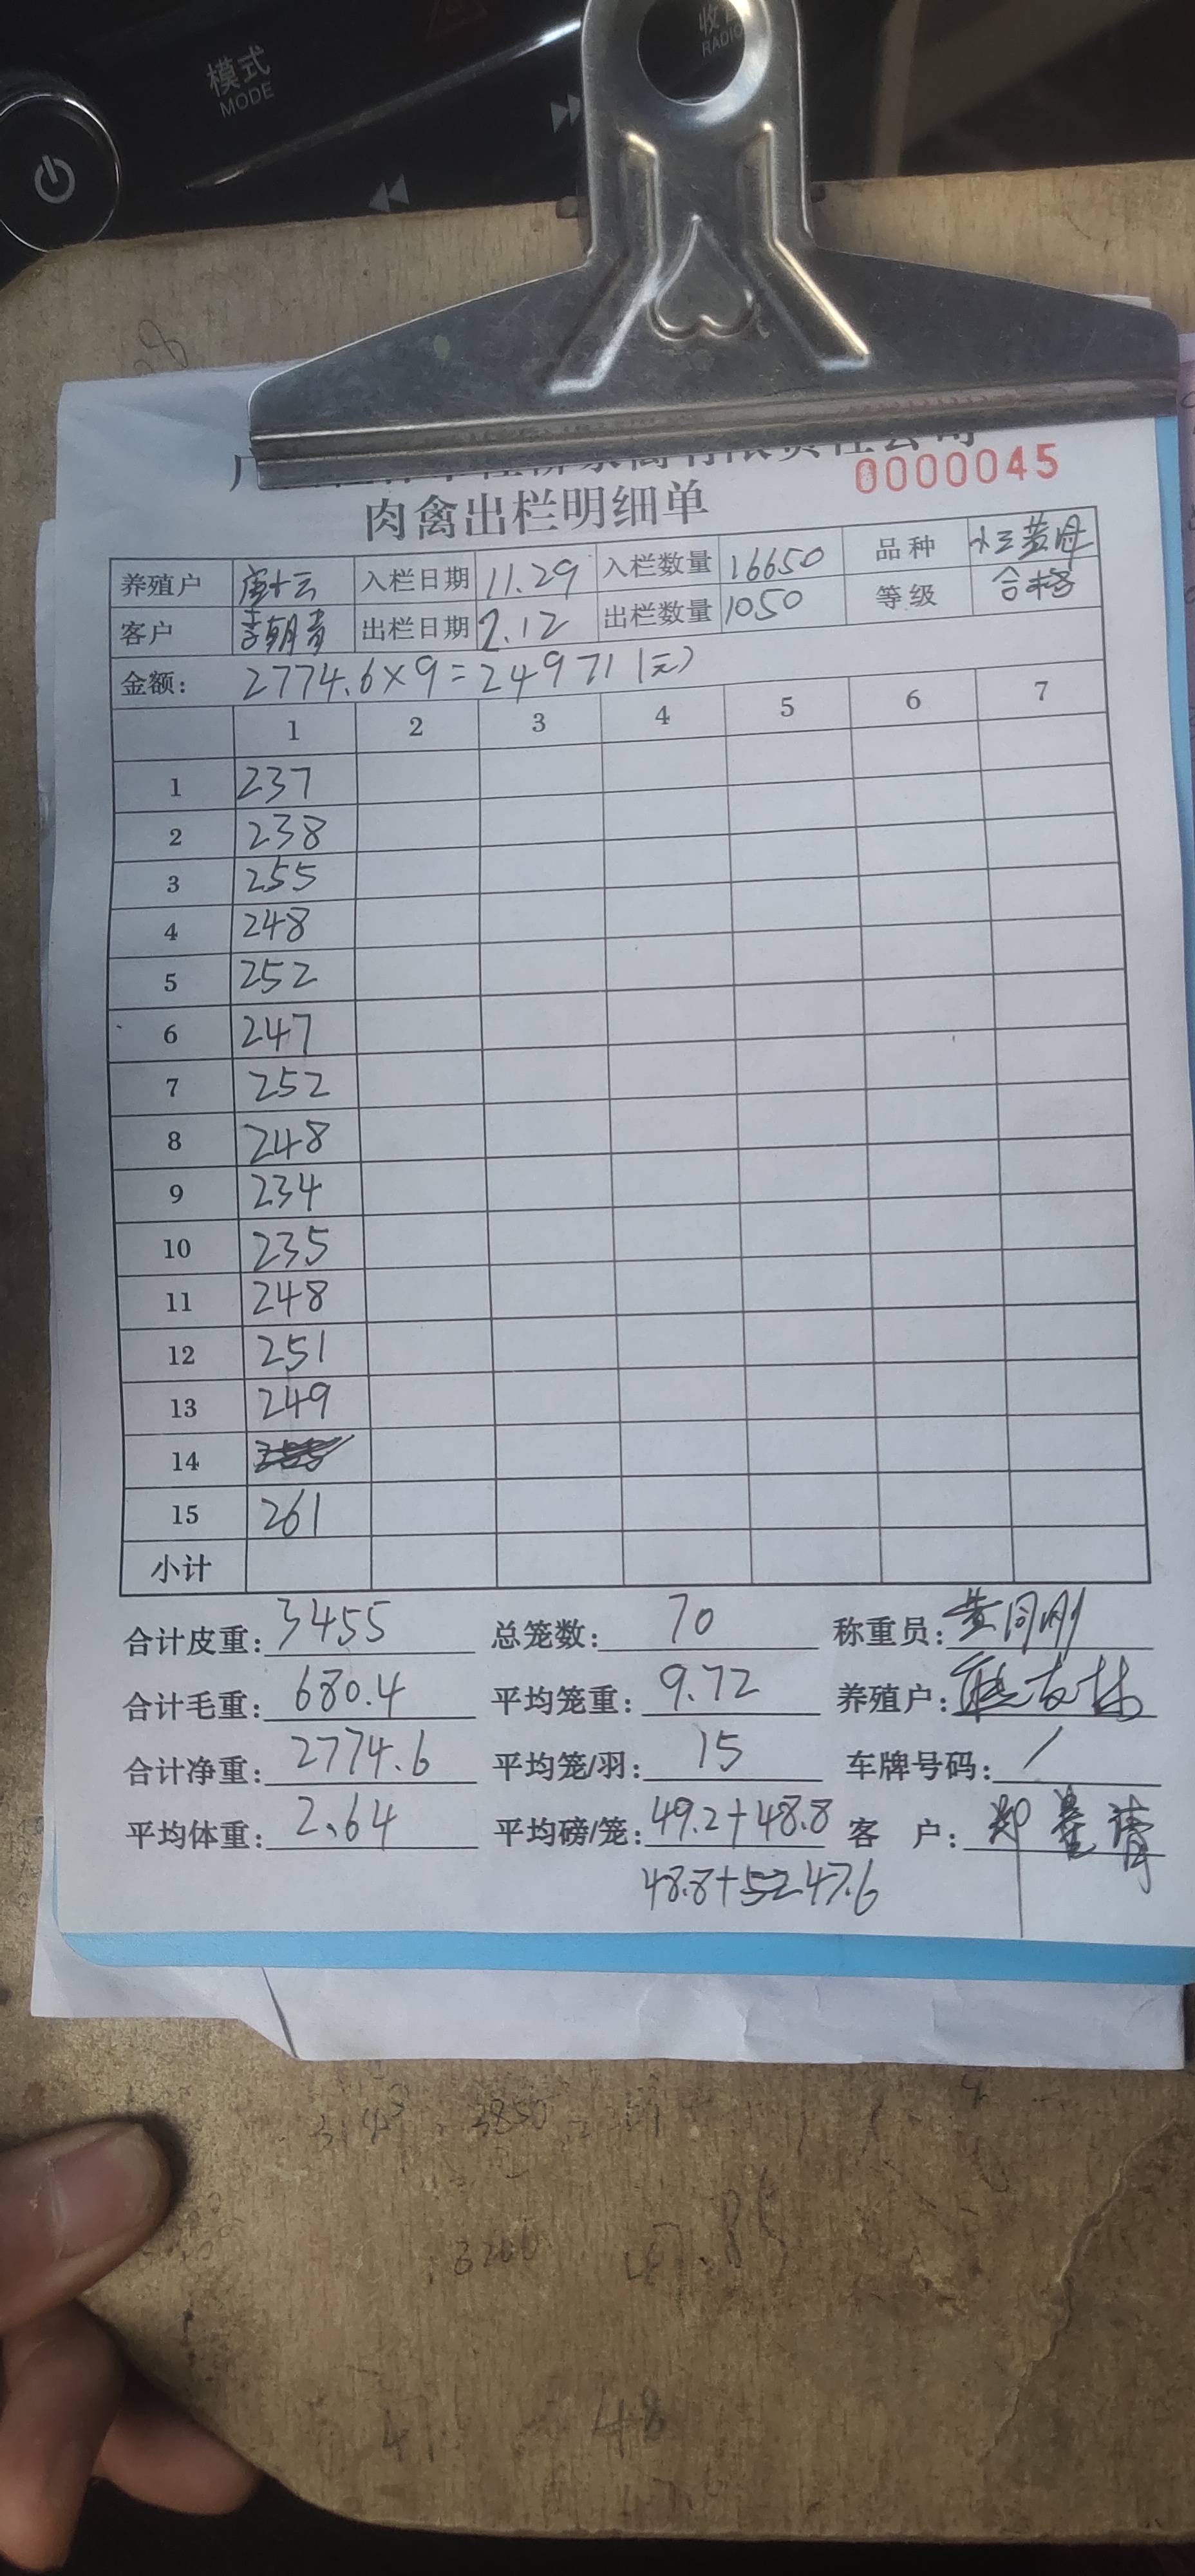 模式
MODE
RADIO
0000045
肉禽出栏明细单
养殖户 入栏日期 11.29 入栏数量 16650 品种
客户 李朝青 出栏日期 2.12 出栏数量 1050 等级 合格
金额: 2774.6×9=24971(元)
1 2 3 4 5 6 7
1 237
2 238
3 255
4 248
5 252
6 247
7 252
8 248
9 234
10 235
11 248
12 251
13 249
14
15 261
小计
合计皮重: 3455 总笼数: 70 称重员:
合计毛重: 680.4 平均笼重: 9.72 养殖户:
合计净重: 2774.6 平均笼/羽: 15 车牌号码: /
平均体重: 2.64 平均磅/笼: 49.2+48.8 客 户:
48.8+52 47.6